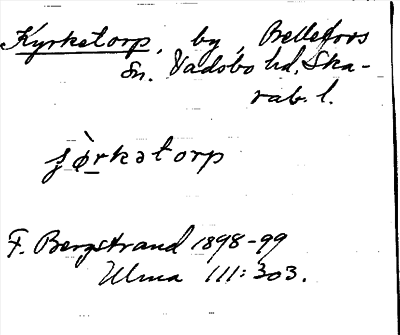 Kyrketorp, by, Bellefors
Sn. Vadsbo hd, Ska-
rab. l.
ʃø̀rkətorp
F. Bergstrand 1898-99
Ulma 111:303.